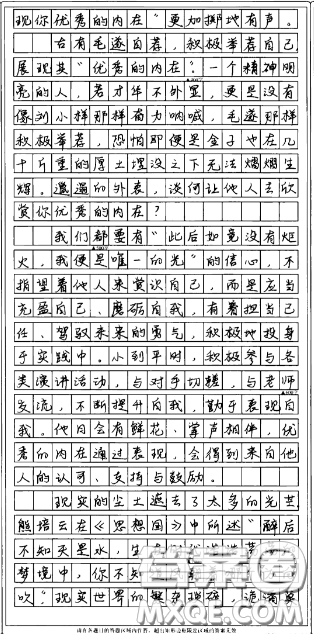 现你优秀的内在“更加掷地有声。
古有毛遂自荐，积极举荐自己，
展现其“优秀的内在？一个精神明
亮的人，若才华不外里，更是没有
像刘小样那样奋力呐喊，毛遂那样
积极举荐，恐怕即便是金子也在几
十斤重的厚土埋没之下无法熠熠生
辉。邋遢的外表，谈何让他人去欣
赏你优秀的内在？
我们都要有“此后如竟没有炬
火，我便是唯一的光”的信心，不
指望着他人来赏识自己，而是应当
充盈自己、磨砺自我，有着担当己
任、驾驭未来的勇气，积极地投身
于实践中。小到平时，积极参与各
类演讲活动，与对手切磋，与老师
交流，不断提升自我，勤于表现自
我。他日会有鲜花、掌声相伴，优
秀的内在通过表现，会得到来自他
人的认可、支持与鼓励。
现实的尘土遮去了太多的光芒
熊培云在《思想国》中所述“醉后
不知天是水，生
梦境中，你不知
吹”现实世界的繁杂琐碎，
请在各题目的答题区域内作答，超出黑色矩形边框限定区域的答案无效